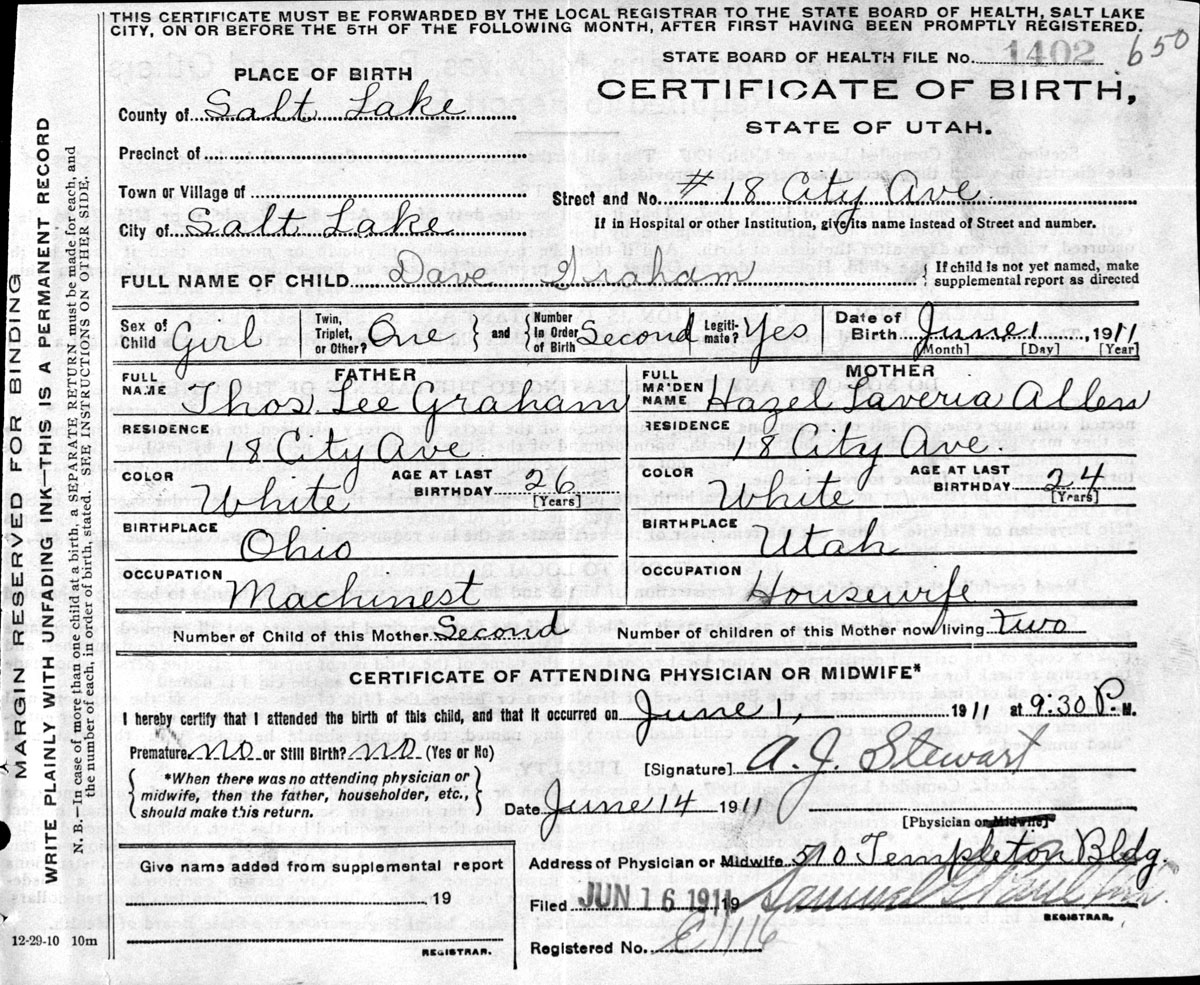 THIS CERTIFICATE MUST BE FORWARDED BY THE LOCAL REGISTRAR TO THE STATE BOARD OF HEALTH, SALT LAKE
CITY, ON OR BEFORE THE 5TH OF THE FOLLOWING MONTH, AFTER FIRST HAVING BEEN PROMPTLY REGISTERED.
STATE BOARD OF HEALTH FILE No. 1402 650
PLACE OF BIRTH
CERTIFICATE OF BIRTH,
County of Salt Lake
STATE OF UTAH.
Precinct of
Town or Village of
Street and No. #18 City Ave.
City of Salt Lake
If in Hospital or other Institution, give its name instead of Street and number.
FULL NAME OF CHILD Dave Graham { If child is not yet named, make
supplemental report as directed
Sex of Child Girl Twin, Triplet, or Other? One } and { Number In Order of Birth Second Legiti-mate? Yes Date of Birth June 1, 1911
[Month] [Day] [Year]
FATHER MOTHER
FULL NAME Thos. Lee Graham FULL MAIDEN NAME Hazel Laveria Allen
RESIDENCE 18 City Ave RESIDENCE 18 City Ave.
COLOR White AGE AT LAST BIRTHDAY 26 [Years] COLOR White AGE AT LAST BIRTHDAY 24 [Years]
BIRTHPLACE Ohio BIRTHPLACE Utah
OCCUPATION Machinest OCCUPATION Housewife
Number of Child of this Mother Second Number of children of this Mother now living two
CERTIFICATE OF ATTENDING PHYSICIAN OR MIDWIFE*
I hereby certify that I attended the birth of this child, and that it occurred on June 1, 1911 at 9:30 P. M.
Premature no or Still Birth? no (Yes or No)
[Signature] A. J. Stewart
{ *When there was no attending physician or
midwife, then the father, householder, etc.,
should make this return. }
Date June 14 1911
[Physician or Midwife]
Give name added from supplemental report
19
REGISTRAR.
Address of Physician or Midwife 510 Templeton Bldg.
Filed JUN 16 1911 19
REGISTRAR.
Registered No.
12-29-10 10m
MARGIN RESERVED FOR BINDING
WRITE PLAINLY WITH UNFADING INK—THIS IS A PERMANENT RECORD
N. B.—In case of more than one child at a birth, a SEPARATE RETURN must be made for each, and
the number of each, in order of birth, stated. SEE INSTRUCTIONS ON OTHER SIDE.